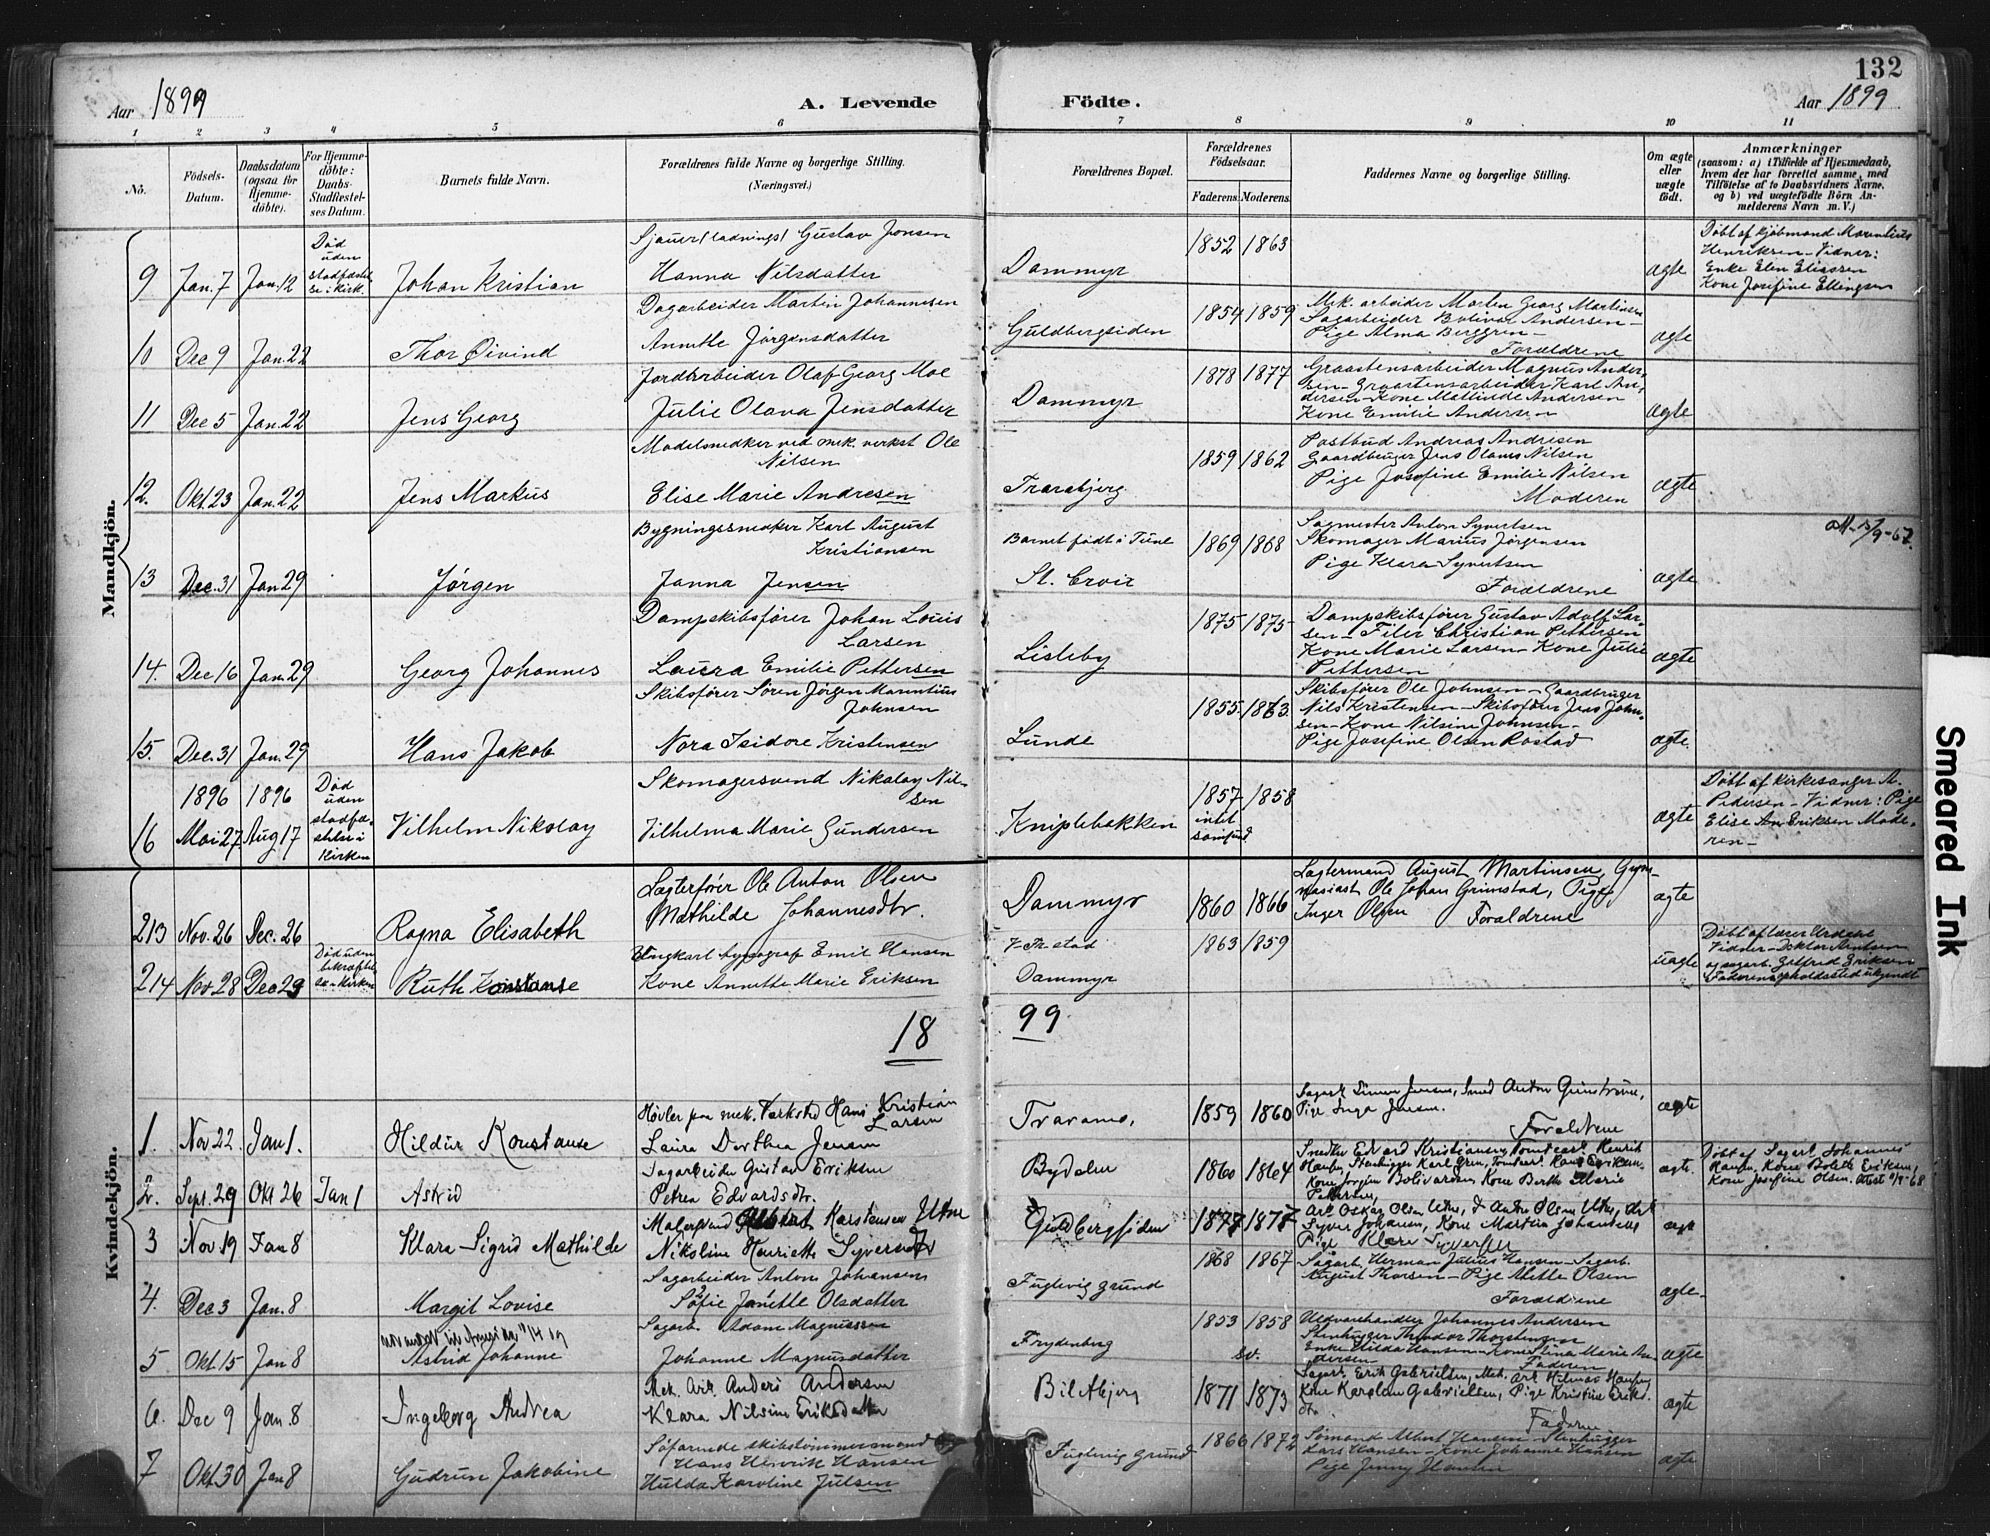 132
Aar 1899
A. Levende
Födte.
Aar 1899
1 2 3 4 5 6 7 8 9 10 11
No.
Födsels-Datum.
Daabsdatum (ogsaa for Hjemme-döbte).
For Hjemme-döbte: Daabs-Stadfæstel-ses Datum.
Barnets fulde Navn.
Forældrenes fulde Navne og borgerlige Stilling.
(Næringsvei.)
Forældrenes Bopæl.
Forældrenes Födselsaar.
Faderens. Moderens.
Faddernes Navne og borgerlige Stilling.
Om ægte eller uægte födt.
Anmærkninger
(saasom: a) i Tilfælde af Hjemmedaab, hvem der har forrettet samme, med Tilföielse af to Daabsvidners Navne, og b) ved uægtefödte Börn An-melderens Navn m. V.)
Mandkjön.
9 Jan. 7 Jan. 12
Død uden stadfæstel se i kirk.
Johan Kristian
Sjauer (ladnings) Gustav Jonsen
Hanna Nilsdatter
Dammyr
1852 1863
ægte
Døbt af kjøbmand Marentius
Henriksen - Vidner:
Enke Elen Eliassen
Kone Josefine Ellingsen
10 Dec 9 Jan. 22
Thor Øivind
Dagarbeider Martin Johannesen
Annette Jørgensdatter
Guldbergsiden
1854 1859
Mek. arbeider Morten Georg Martinsen
Sagarbeider Bolivar Andersen -
Pige Alma Berggren -
Forældrene
ægte
11 Dec 5 Jan. 22
Jens Georg
Jordarbeider Olaf Georg Moe
Julie Olava Jensdatter
Dammyr
1878 1877
Graastensarbeider Magnus Ander-
sen - Graastensarbeider Karl An-
dersen - Kone Mathilde Andersen
Kone Emilie Andersen
ægte
12. Okt. 23 Jan. 22
Jens Markus
Modelsnedker ved mek. verkst Ole
Nilsen
Elise Marie Andresen
Trarabjerg
1859 1862
Postbud Andreas Andresen
Gaardbruger Jens Olaves Nilsen
Pige Josefine Emilie Nilsen
Moderen
ægte
13 Dec. 31 Jan 29
Jørgen
Bygningssnedker Karl August
Kristiansen
Janna Jensen
Barnet født i Tune
St. Croix
1869 1868
Sagmester Anton Syvertsen
Skomager Marius Jørgensen
Pige Klara Syvertsen
Forældrene
ægte
14. Dec 16 Jan. 29
Georg Johannes
Dampskibsfører Johan Louis
Larsen
Laura Emilie Pettersen
Lisleby
1875 1875
Dampskibsfører Gustav Adolf Lar-
sen - Filer Christian Pettersen
Kone Marie Larsen - Kone Julie
Pettersen
ægte
15. Dec. 31 Jan. 29
Hans Jakob
Skibsfører Søren Jørgen Marentius
Johnsen
Nora Isidore Kristensen
Lunde
1855 1863.
Skibsfører Ole Johnsen - Gaardbruger
Nils Kristensen - Skibsfører Jens John-
sen - Kone Nilsine Johnsen -
Pige Josefine Olsen Rostad
ægte.
1896 1896
16 Mai 27 Aug 17
Død uden stadfæ-stelse i Kirken
Vilhelm Nikolay
Skomagersvend Nikolay Nil-
sen
Vilhelma Marie Gundersen
Kniplebakken
1857 1858
samfund
ægte
Døbt af kirkesanger A.
Pedersen - Vidner: Pige
Elise Eriksen Mode-
ren -
Kvindekjön.
213 Nov. 26 Dec. 26
Ragna Elisabeth
Lægterfører Ole Anton Olsen
Mathilde Johannesdtr.
Dammyr
1860 1866
Lagtermand August Martinsen, Gym-
nasiast Ole Johan Grimstad, Pige
Inger Olsen Forældrene
ægte
214 Nov. 28 Dec 29
Død uden bekræftel se i Kirken
Ruth Konstanse
Ungkarl typograf Emil Hansen
Kone Annette Marie Eriksen
Dammyr
1863 1859
uægte
18 99
1. Nov 22. Jan 1.
Hildur Konstanse
Høvler paa mek. Værksted Hans Kristian
Larsen
Laura Dorthea Jensen
1859 1860
Pige Inga Jensen.
Forældrene
ægte
2. Sept. 29 Okt 26 Jan 1
Astrid
Sagarbeider Gustav Eriksen
Petrea Edvardsdtr.
Bydalen
1860 1864
Snedker Edvard Kristiansen
Pettersen,
ægte.
Døbt af Sagarb. Johannes
Hansen, Kone Bolette Eriksen,
Kone Josefine Olsen.
3 Nov 19 Jan 8
Klara Sigrid Mathilde
Malersvend Karstensen Utne
Nikoline Henriette Syversdtr
Guldbergsiden
1877 1877
ægte
4. Dec 3 Jan. 8
Margit Lovise
Sagarbeider Anton Johansen
Sofie Janette Olsdatter
Fuglevig grund
1868 1867
Sagarb. Herman Julius Hansen - Sagarb.
August Thorsen - Pige Alette Olsen
Forældrene
ægte.
5 Okt. 15 Jan 8
Astrid Johanne
Sagarb. Adam Magnussen
Johanne Magnusdatter
Frydenberg
1853 1858
Uldvarehandler Johannes Andersen
Stenhugger Theodor Thorstensen
Enke Hilda Hansen - Kone Stina Marie An-
dersen - Faderen
ægte
6. Dec 9 Jan. 8
Ingeborg Andrea
Mek. Arb. Anders Andersen
Klara Nilsine Eriksdatter
Biletbjerg
1871 1873
Sagarb. Erik Gabrielsen, Mek. Arb Hilmar Hansen,
Kone Karoline Gabrielsen, Pige Kristine Eriks-
dtr.
Faderen
ægte
7 Okt. 30 Jan 8
Gudrun Jakobine
Søfarende skibstømmermand
Hans Henrik Hansen
Hulda Karoline Julsen
Fuglevig grund
1866 1872
Sømand Albert Hansen - Stenhugger
Lars Hansen - Kone Johanne Hansen
Pige Jenny Hansen
ægte
Smeared Ink